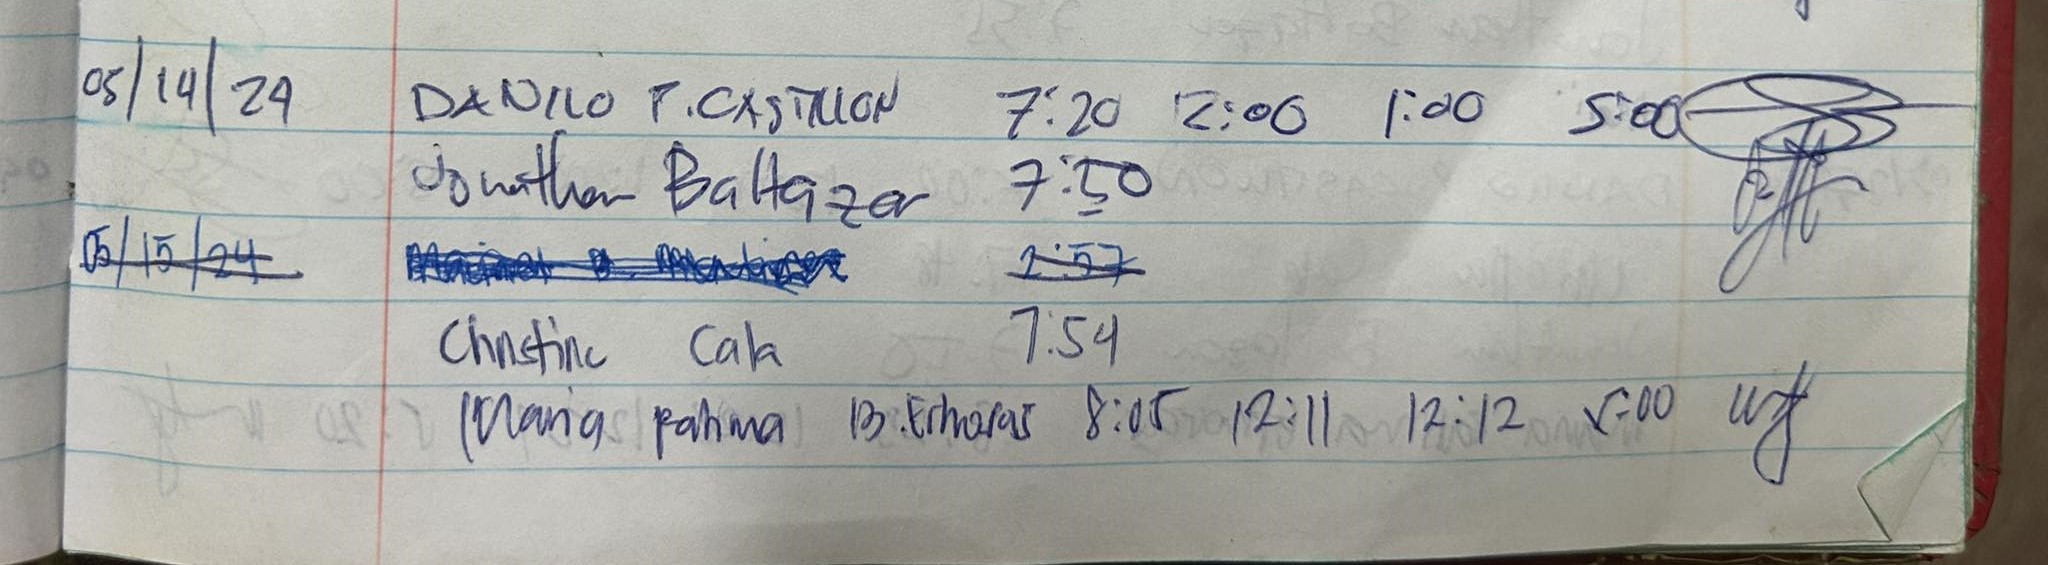 05/14/24 DANILO P. CASTILLON 7:20 12:00 1:00 5:00
Jonathan Baltazar 7:50
05/15/24 2:57
Christine Cala 7:54
Maria Fatima B. 8:05 12:11 12:12 5:00